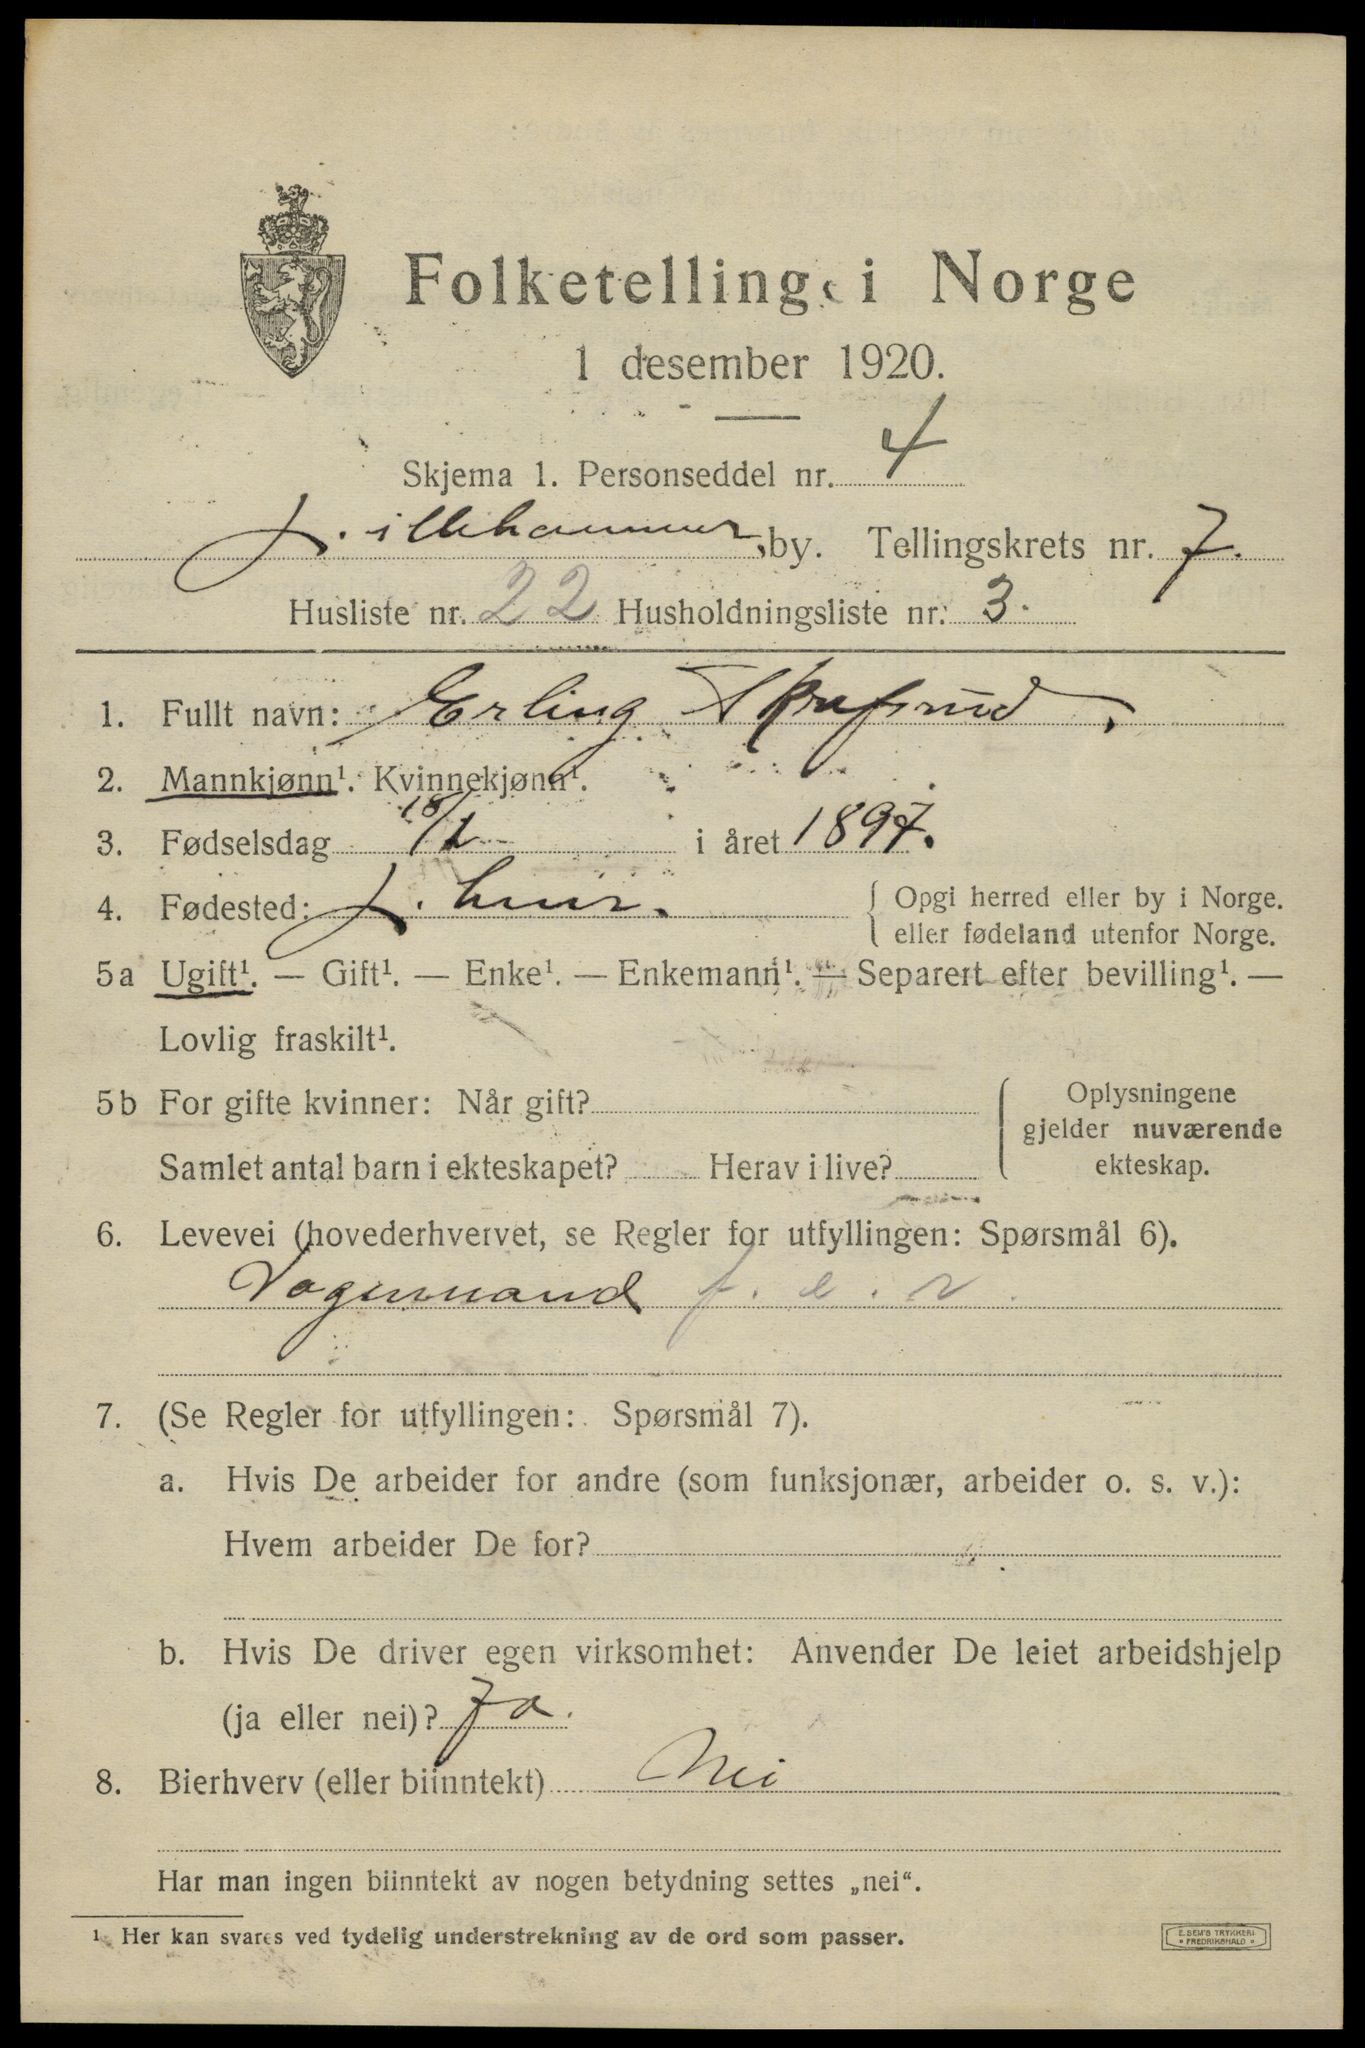 Folketelling i Norge
1 desember 1920.
Skjema 1. Personseddel nr. 4
Lillehammer, by. Tellingskrets nr. 7.
Husliste nr. 22 Husholdningsliste nr. 3.
1. Fullt navn: Erling Skrefsrud.
2. Mannkjønn¹. Kvinnekjønn¹.
3. Fødselsdag 18/1 i året 1897.
4. Fødested: L.hmr. { Opgi herred eller by i Norge.
eller fødeland utenfor Norge.
5a Ugift¹. — Gift¹. — Enke¹. — Enkemann¹. — Separert efter bevilling¹. —
Lovlig fraskilt¹.
5b For gifte kvinner: Når gift?
Samlet antal barn i ekteskapet? Herav i live?
Oplysningene
gjelder nuværende
ekteskap.
6. Levevei (hovederhvervet, se Regler for utfyllingen: Spørsmål 6).
Vognmand f. e. r.
7. (Se Regler for utfyllingen: Spørsmål 7).
a. Hvis De arbeider for andre (som funksjonær, arbeider o. s. v.):
Hvem arbeider De for?
b. Hvis De driver egen virksomhet: Anvender De leiet arbeidshjelp
(ja eller nei)? Ja.
8. Bierhverv (eller biinntekt) Nei
Har man ingen biinntekt av nogen betydning settes „nei“.
¹ Her kan svares ved tydelig understrekning av de ord som passer.
E. SEM'S TRYKKERI
FREDRIKSHALD